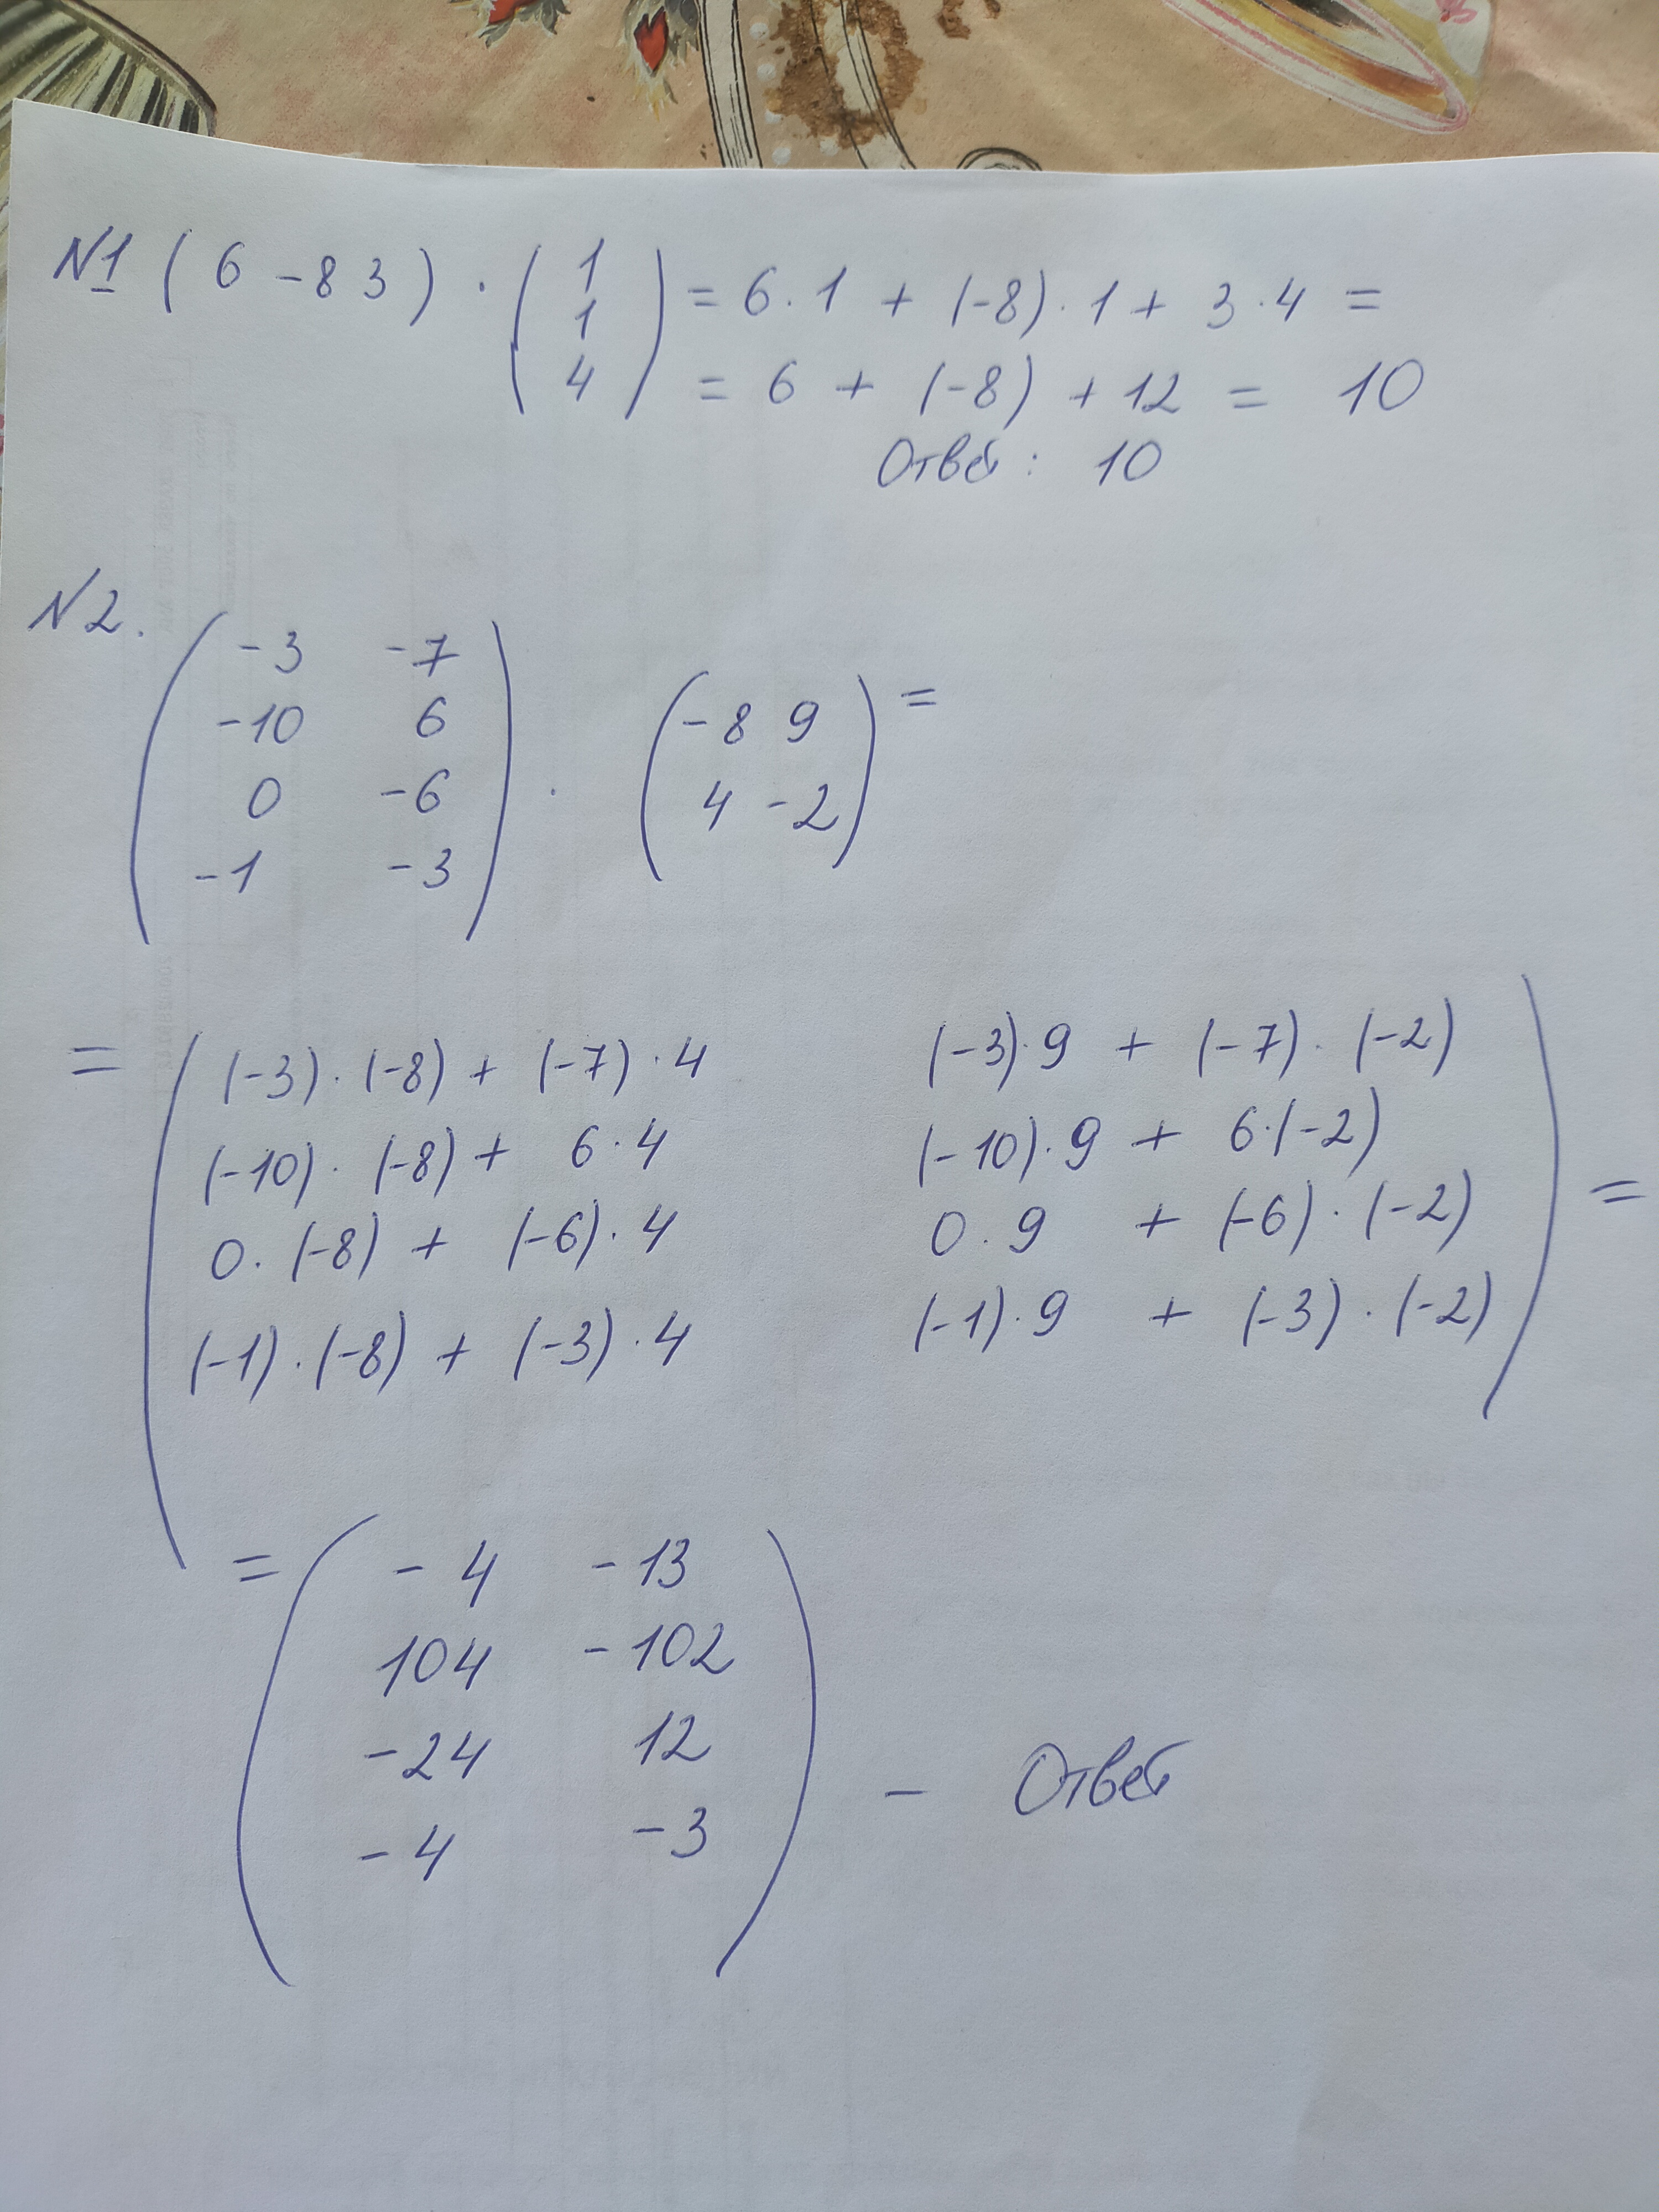 №1 ( 6 -8 3 ) · ( 1 1 4 ) = 6 · 1 + (-8) · 1 + 3 · 4 =
= 6 + (-8) + 12 = 10
Ответ : 10
N2.
( -3 -7
-10 6
0 -6
-1 -3 ) · ( -8 9
4 -2 ) =
= ( (-3) · (-8) + (-7) · 4 (-3) · 9 + (-7) · (-2)
(-10) · (-8) + 6 · 4 (-10) · 9 + 6 · (-2)
0 · (-8) + (-6) · 4 0 · 9 + (-6) · (-2)
(-1) · (-8) + (-3) · 4 (-1) · 9 + (-3) · (-2) ) =
= ( -4 -13
104 -102
-24 12
-4 -3 ) - Ответ